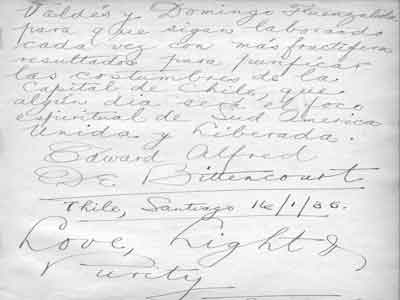 Valdés y Domingo Fuenzalida
para que sigan laborando
cada vez con más fructífera
resultados para purificar
las costumbres de la
Capital de Chile, que
algún día será el foco
espiritual de Sud America
Unida y Liberada.
Edward Alfred
De Bittencourt
Chile, Santiago 16/1/36.
Love, Light &
Purity